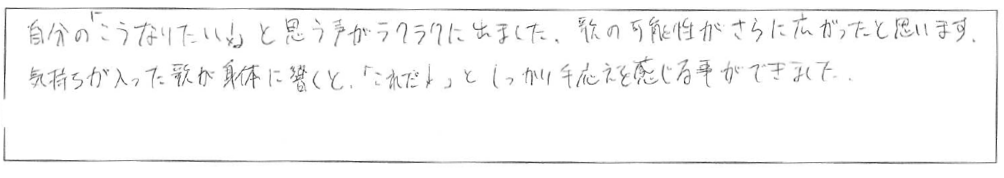 自分の「こうなりたい!」と思う声がラクラクに出ました。歌の可能性がさらに広がったと思います。
気持ちが入った歌が身体に響くと、「これだ!」としっかり手応えを感じる事ができました。